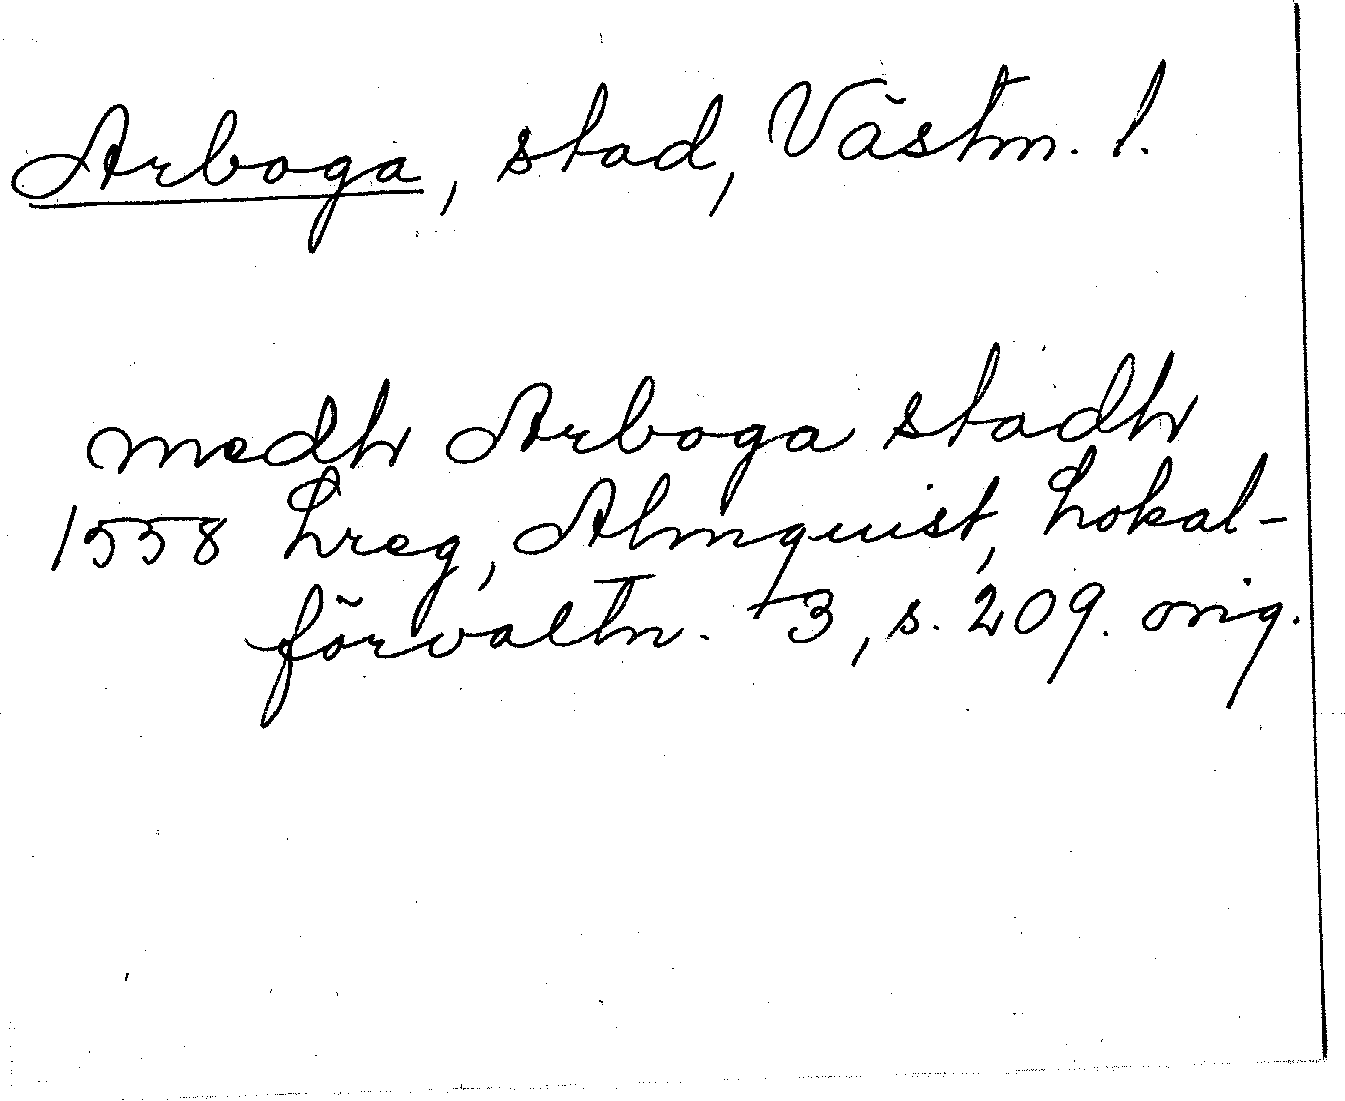 Arboga, stad, Västm. l.
medh Arboga stadh
1558 Lreg, Almquist, Lokal-
förvaltn. 3, s. 209. orig.